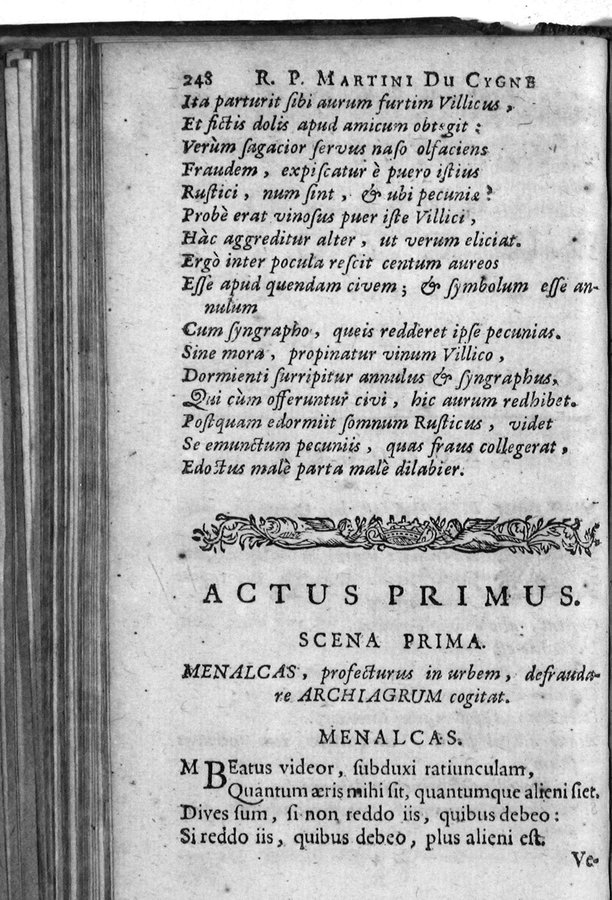 248 R. P. MARTINI DU CYGNE
Ita parturit ſibi aurum furtim Villicus,
Et fictis dolis apud amicum obtegit:
Verùm ſagacior ſervus naſo olfaciens
Fraudem, expiſcatur è puero iſtius
Ruſtici, num ſint, & ubi pecuniæ?
Probè erat vinoſus puer iſte Villici,
Hàc aggreditur alter, ut verum eliciat.
Ergò inter pocula reſcit centum aureos
Eſſe apud quendam civem; & ſymbolum eſſe an-
nulum
Cum ſyngrapho, queis redderet ipſe pecunias.
Sine mora, propinatur vinum Villico,
Dormienti ſurripitur annulus & ſyngraphus,
Qui cùm offeruntur civi, hic aurum redhibet.
Poſtquam edormiit ſomnum Ruſticus, videt
Se emunctum pecuniis, quas fraus collegerat,
Edoctus malè parta malè dilabier.
ACTUS PRIMUS.
SCENA PRIMA.
MENALCAS, profecturus in urbem, defrauda-
re ARCHIAGRUM cogitat.
MENALCAS.
M BEatus videor, ſubduxi ratiunculam,
Quantum æris mihi ſit, quantumque alieni ſiet.
Dives ſum, ſi non reddo iis, quibus debeo:
Si reddo iis, quibus debeo, plus alieni eſt.
Ve-